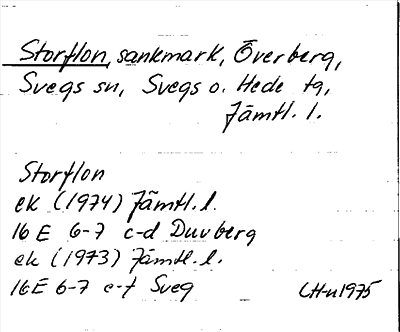 Storflon, sankmark, Överberg,
Svegs sn, Svegs o. Hede tg,
Jämtl. l.
Storflon
ek (1974) Jämtl. l.
16 E 6-7 c-d Duvberg
ek (1973) Jämtl. l.
16E 6-7 e-f Sveg
CH-n 1975